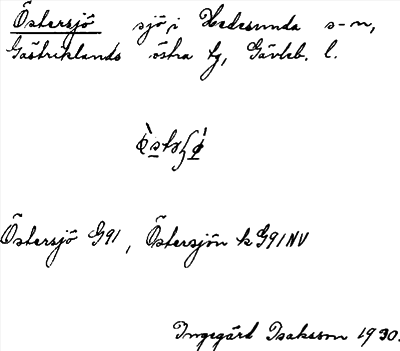 Östersjö sjö, i Hedesunda s-n,
Gästriklands östra tg, Gävleb. l.
Östersjö G91, Östersjön k G91NV
Ingegärd Isaksson 1930.